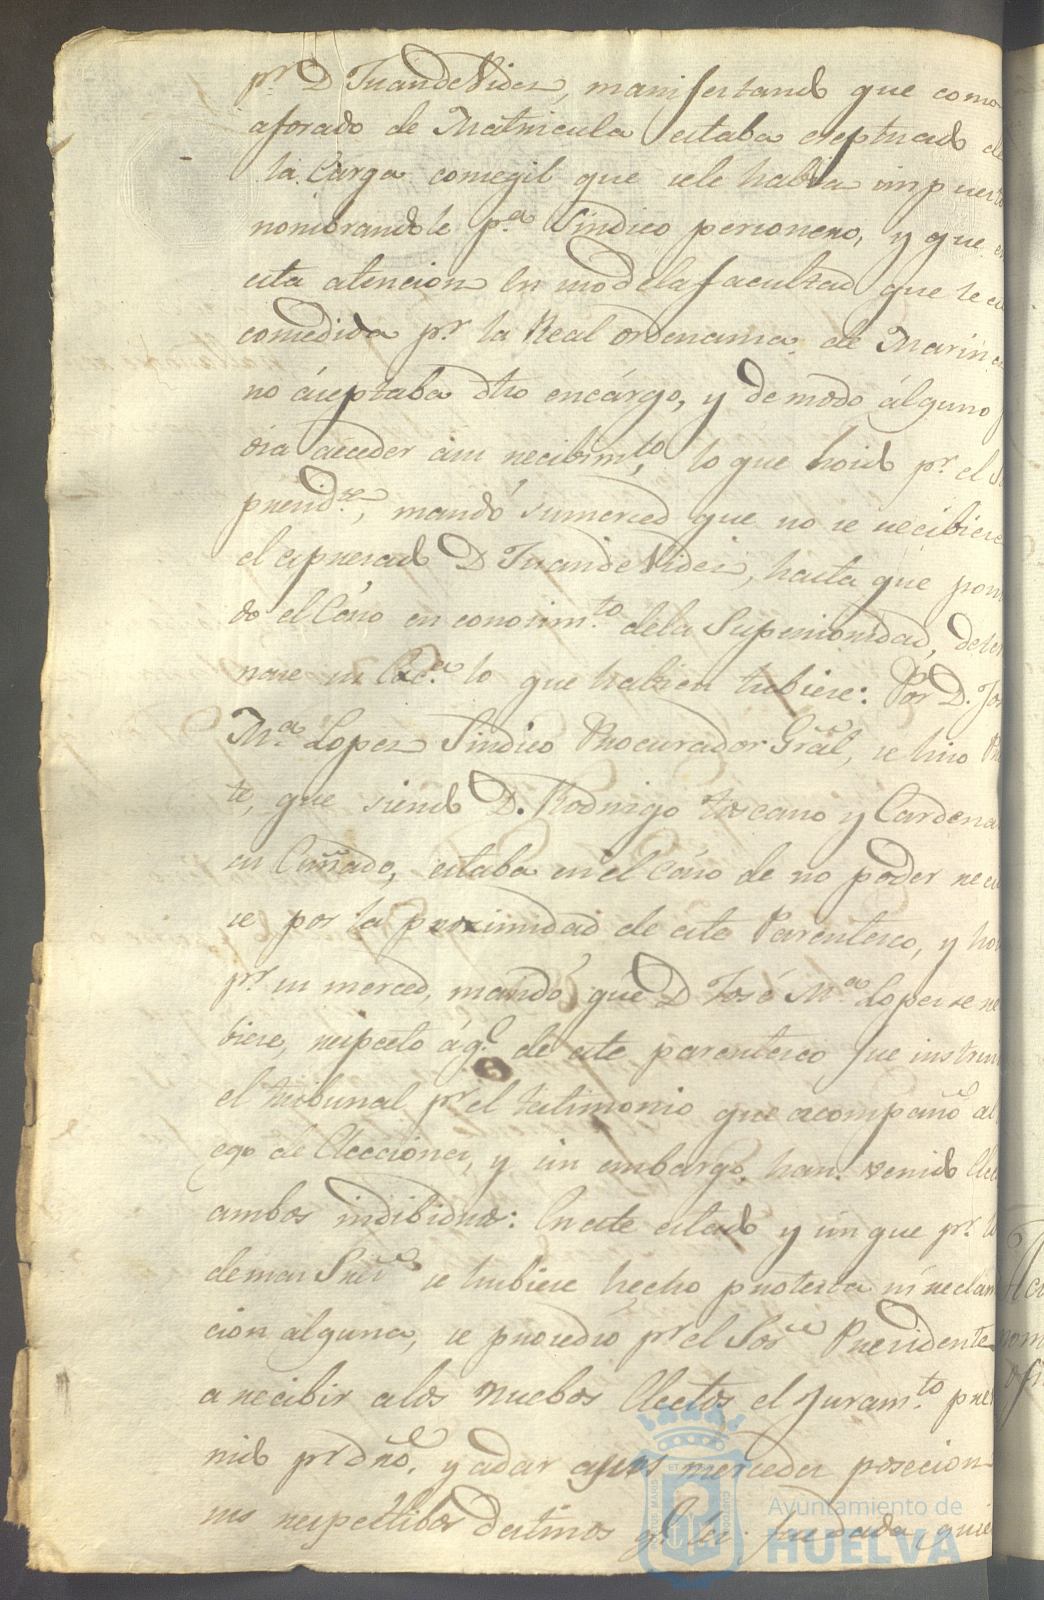 pr. D Juan de Vides, manifestando que como
aforado de Matricula estaba ereptuado de
la Carga consegil que sele habia impuesto
nombrandole pa. Sindico personero, y que en
esta atencion en uso de la facultad que le
concedida pr. la Real ordenanza de Marina
no áceptaba dho encárgo, y de modo álguno
dia acceder ásu recibimto., lo que hoido pr. el
presidte., mandó su merced que no se recibiese
el espresado D Juan de Vides, hasta que
do el Cáso en conosimto. dela Superioridad,
nase su Exca. lo que habien tubiese: Por D. Jos
Ma. Lopez Sindico Procurador Grâl, se hiso
te, que siendo D. Rodrigo toscano y Cardenas
su Cuñado, estaba en el Cáso de no poder
se por la proximidad de este Parentesco, y
pr. su merced, mandó que D José Ma. Lopez se
biese, respecto á q.e de este parentesco fue
el tribunal pr. el testimonio que acompañó al
ego de Elecciones, y sin embargo han venido
ambos indibiduos: En este estado y sin que pr. los
demas Sres. se hubiese hecho protesta ni reclama
cion alguna, se prosedio pr. el Sor. Presidente
a recibir alos nuebos Electos el Juramto.
nido pr. dro., y adar a sus mercedes posecion
sus respectibos destinos q. les fue dada,
Ayuntamiento de
HUELVA